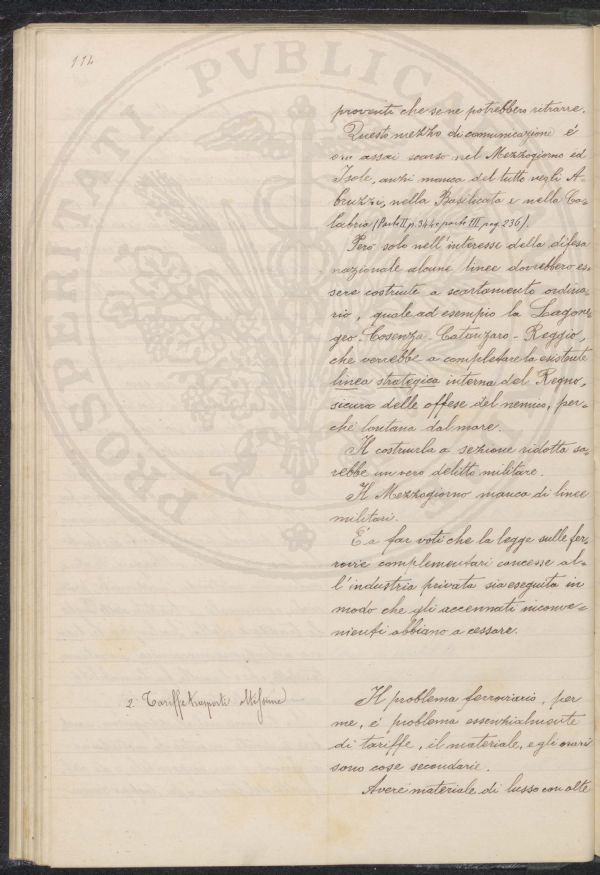 114
PROSPERITATI PVBLICAE
proventi che se ne potrebbero ritrarre.
Questo mezzo di comunicazione é
ora assai scarso nel Mezzogiorno ed
Isole, anzi manca del tutto negli A-
bruzzi, nella Basilicata e nella Ca-
labria (Parte II p. 344 e parte III pag. 236).
Peró solo nell'interesse della difesa
nazionale alcune linee dovrebbero es-
sere costruite a scartamento ordina-
rio, quale ad esempio la Lagone-
gro-Cosenza-Catanzaro-Reggio,
che verrebbe a completare la esistente
linea strategica interna del Regno,
sicura delle offese del nemico, per-
ché lontana dal mare.
Il costruirla a sezione ridotta sa-
rebbe un vero delitto militare.
Il Mezzogiorno manca di linee
militari.
É a far voti che la legge sulle fer-
rovie complementari concesse al-
l'industria privata sia eseguita in
modo che gli accennati inconve-
nienti abbiano a cessare.
2. Tariffe trasporti
Il problema ferroviario, per
me, é problema essenzialmente
di tariffe, il materiale, e gli orari
sono cose secondarie.
Avere materiale di lusso con alte